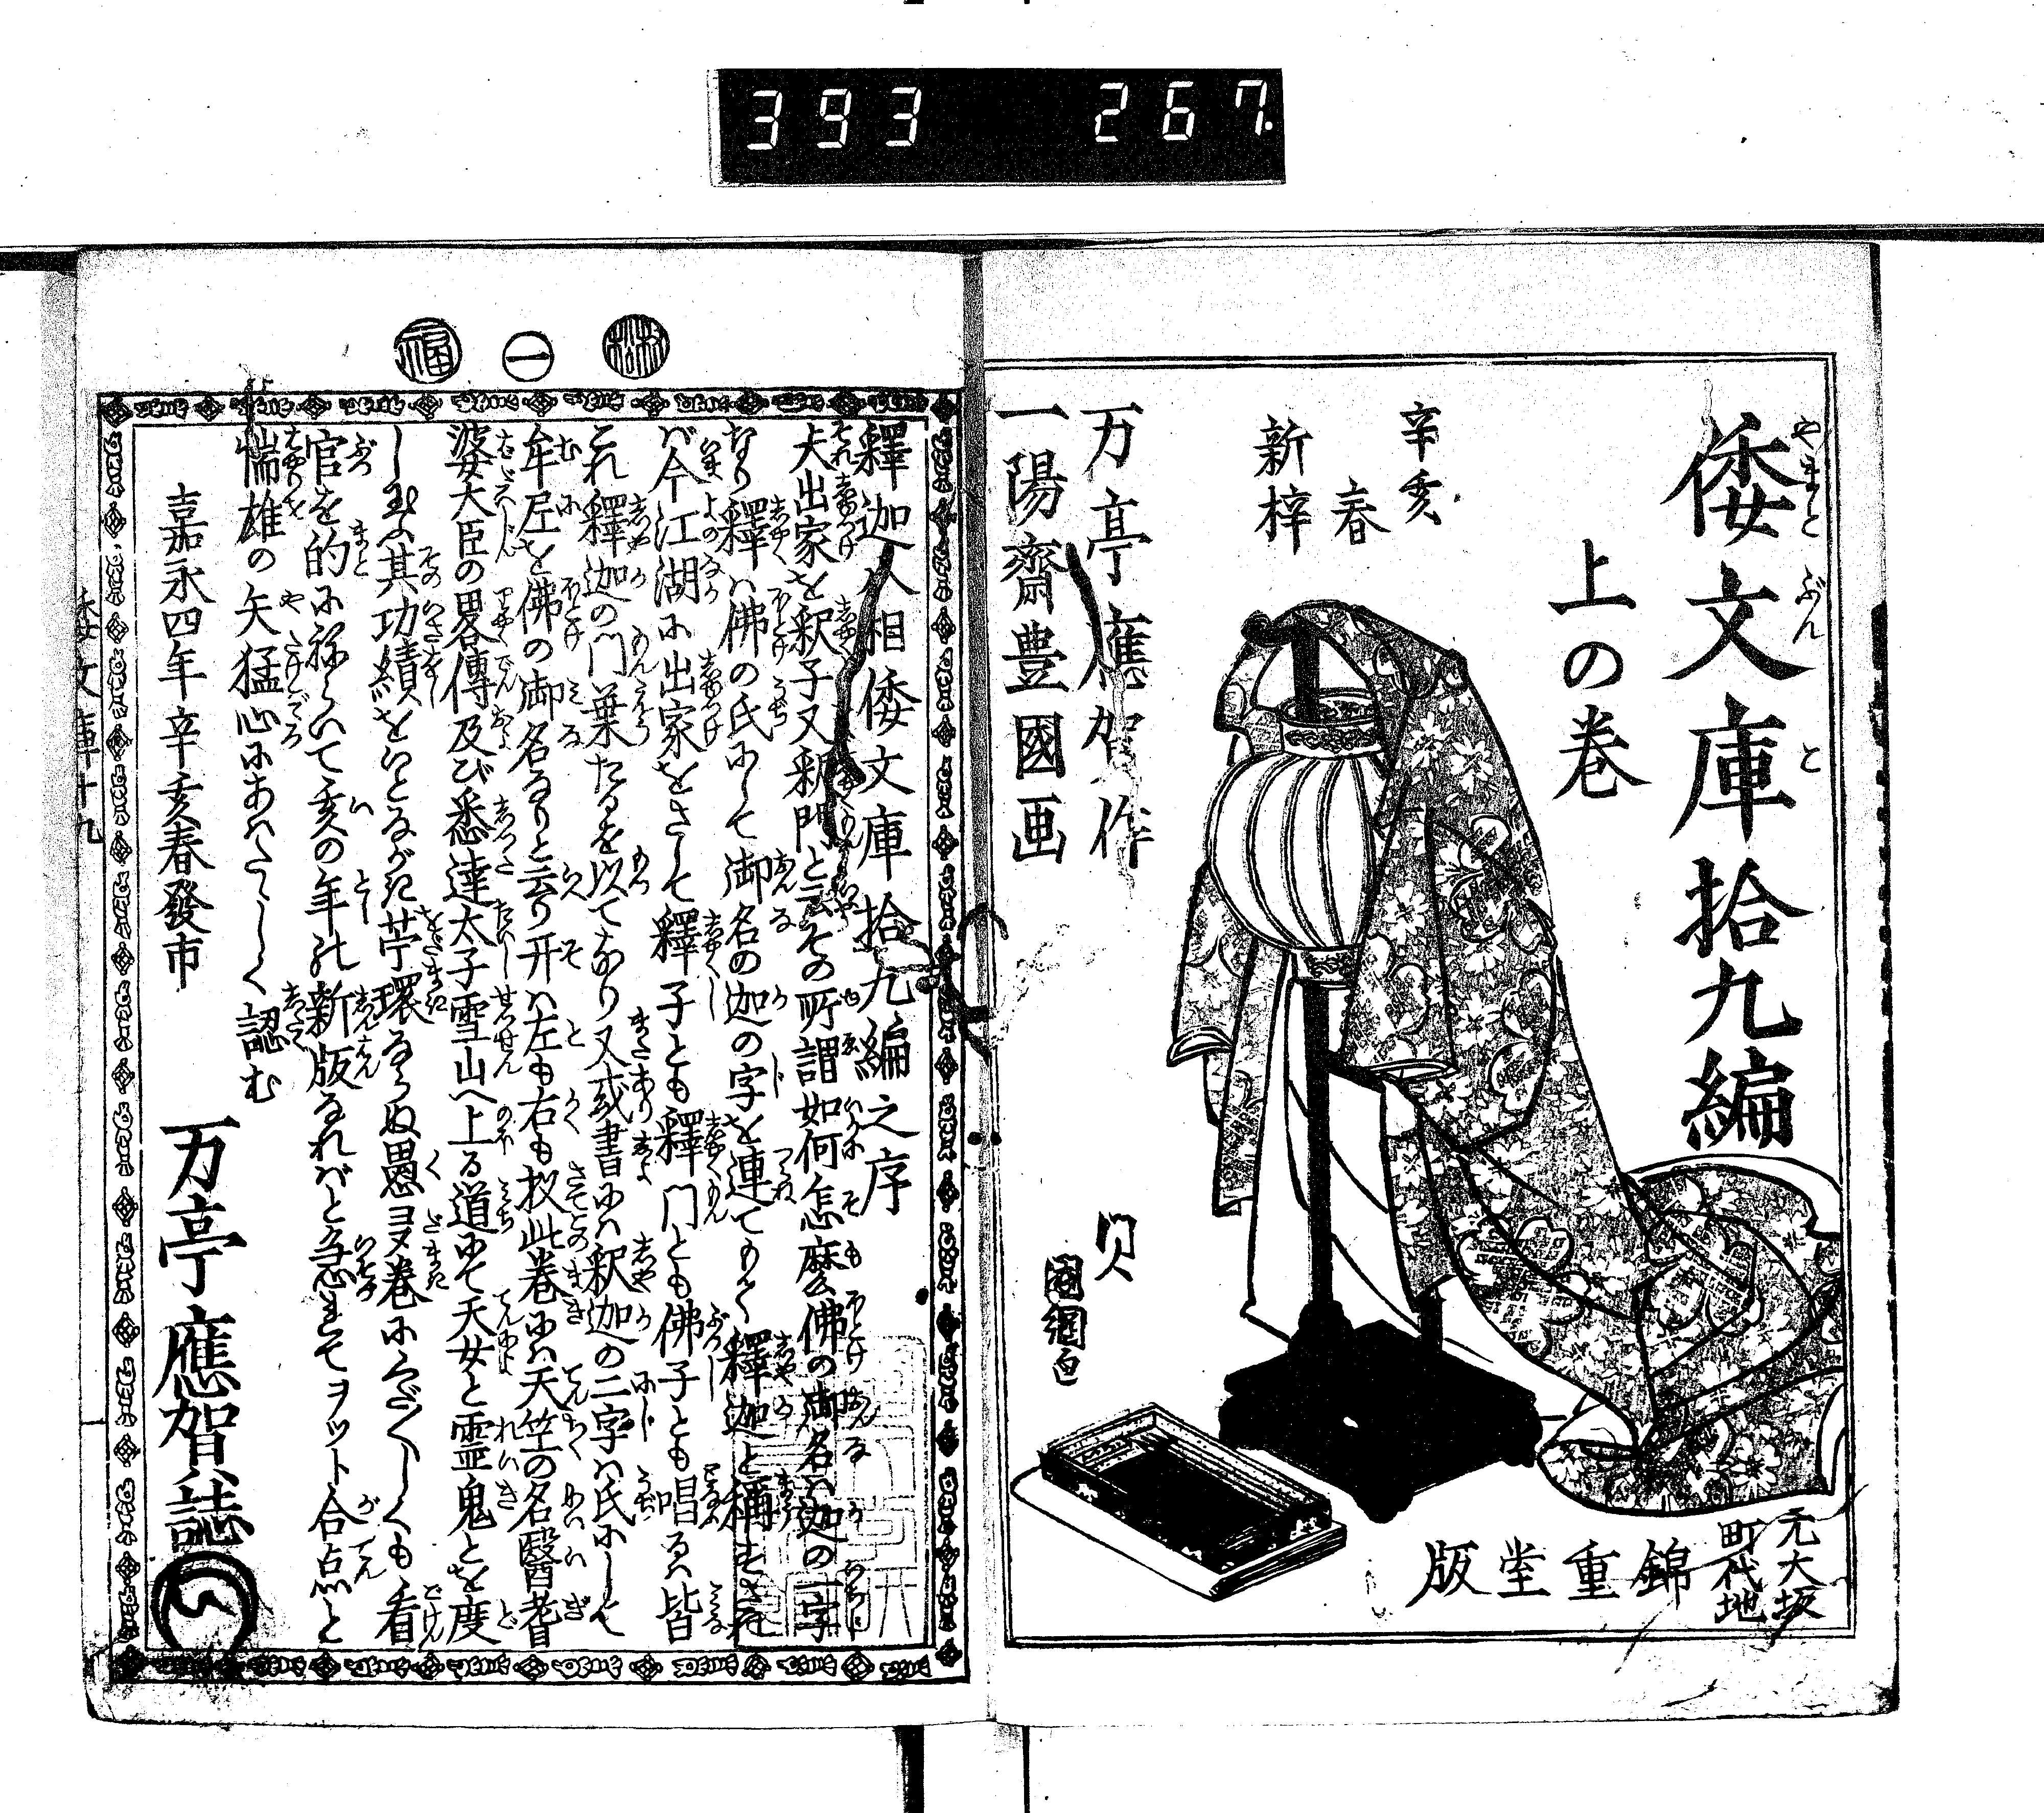 393 267.
倭文庫拾九編
やまとぶんこ
上の巻
辛亥
春
新梓
万亭應賀作
一陽齋豊國画
元大坂
町代地
錦重堂版
松
一
福
釋迦八相倭文庫拾九編之序
夫出家を釈子又釈門と云その所謂如何怎麼佛の御名ハ迦の一字
なり釋ハ佛の氏にして御名の迦の字を連てもつて釋迦と稱まをさ
バ今江湖に出家をさして釋子とも釋門とも佛子とも唱るハ皆
これ釋迦の門葉たるを以てなり又或書にハ釈迦の二字ハ氏にして
牟尼を佛の御名なりと云り开ハ左も右も扨此巻にハ天竺の名醫耆
婆大臣の畧傳及び悉達太子雪山へ上る道にて天女と霊鬼とを度
し玉ふ其功績をいとながき苧環ならぬ愚ヨタ巻にくだ〳〵しくも看
官を的にねらいて亥の年の新版なればと急ませヲツト合点と
惴雄の矢猛心にあハたゝしく認む
嘉永四年辛亥春發市
万亭應賀誌
倭文庫十九